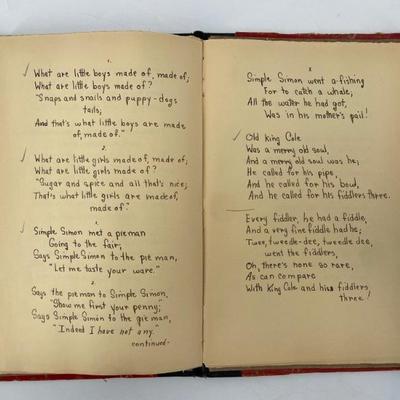 1.
✓ What are little boys made of, made of;
What are little boys made of?
"Snaps and snails and puppy-dogs
tails;
And that's what little boys are made
of, made of."
2.
✓ What are little girls made of, made of,
What are little girls made of?
"Sugar and spice and all that's nice;
That's what little girls are made of,
made of."
1.
✓ Simple Simon met a pieman
Going to the fair;
Says Simple Simon to the pie man,
"Let me taste your ware."
2.
Says the pieman to Simple Simon,
"Show me first your penny;"
Says Simple Simon to the pie man,
"Indeed I have not any."
continued-
Simple Simon went a-fishing
For to catch a whale;
All the water he had got,
Was in his mother's pail!
✓ Old King Cole
Was a merry old soul,
And a merry old soul was he;
He called for his pipe,
And he called for his bowl,
And he called for his fiddlers three.
Every fiddler, he had a fiddle,
And a very fine fiddle had he;
Twee, tweedle-dee, tweedle dee,
went the fiddlers,
Oh, there's none so rare,
As can compare
With King Cole and his fiddlers
three!